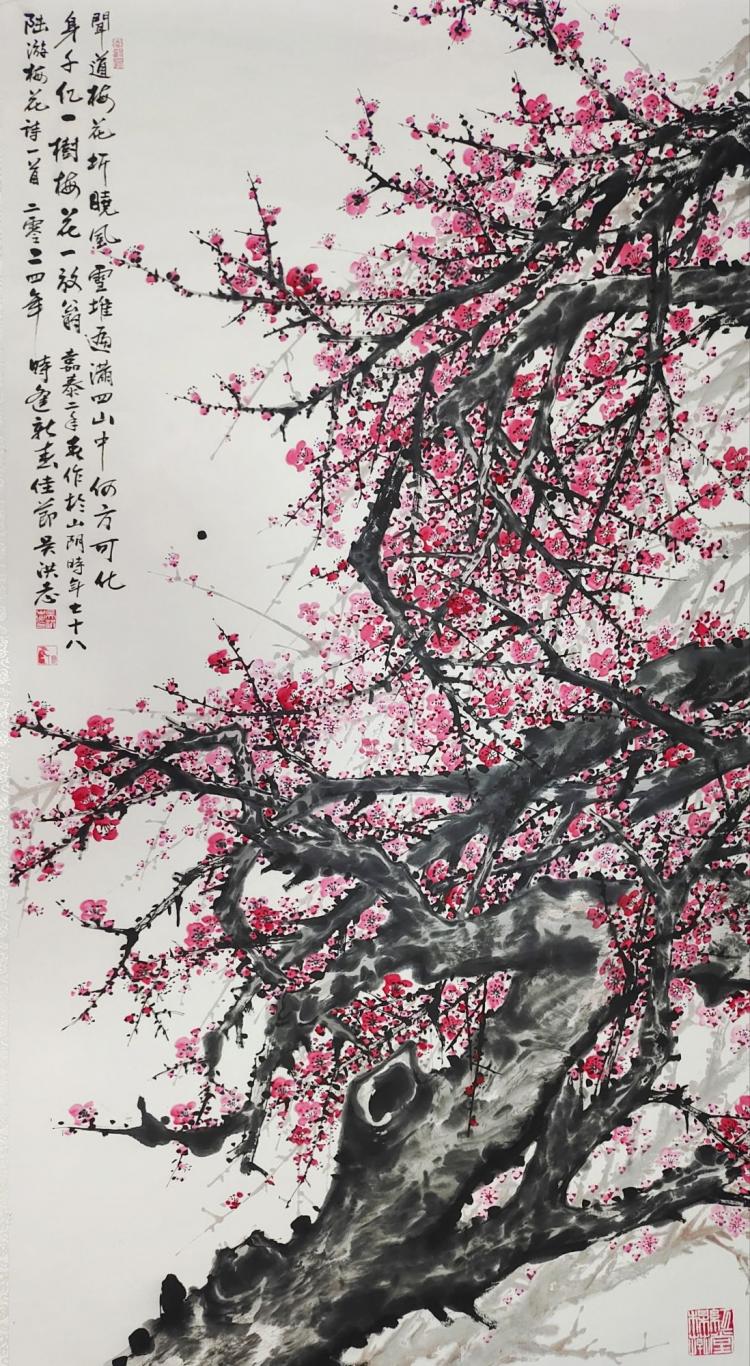 聞道梅花坼曉風雪堆遍滿四山中何方可化
身千亿一樹梅花一放翁嘉泰二年春作於山阴時年七十八
陆游梅花诗一首二零二四年時逢新春佳節吴洪志